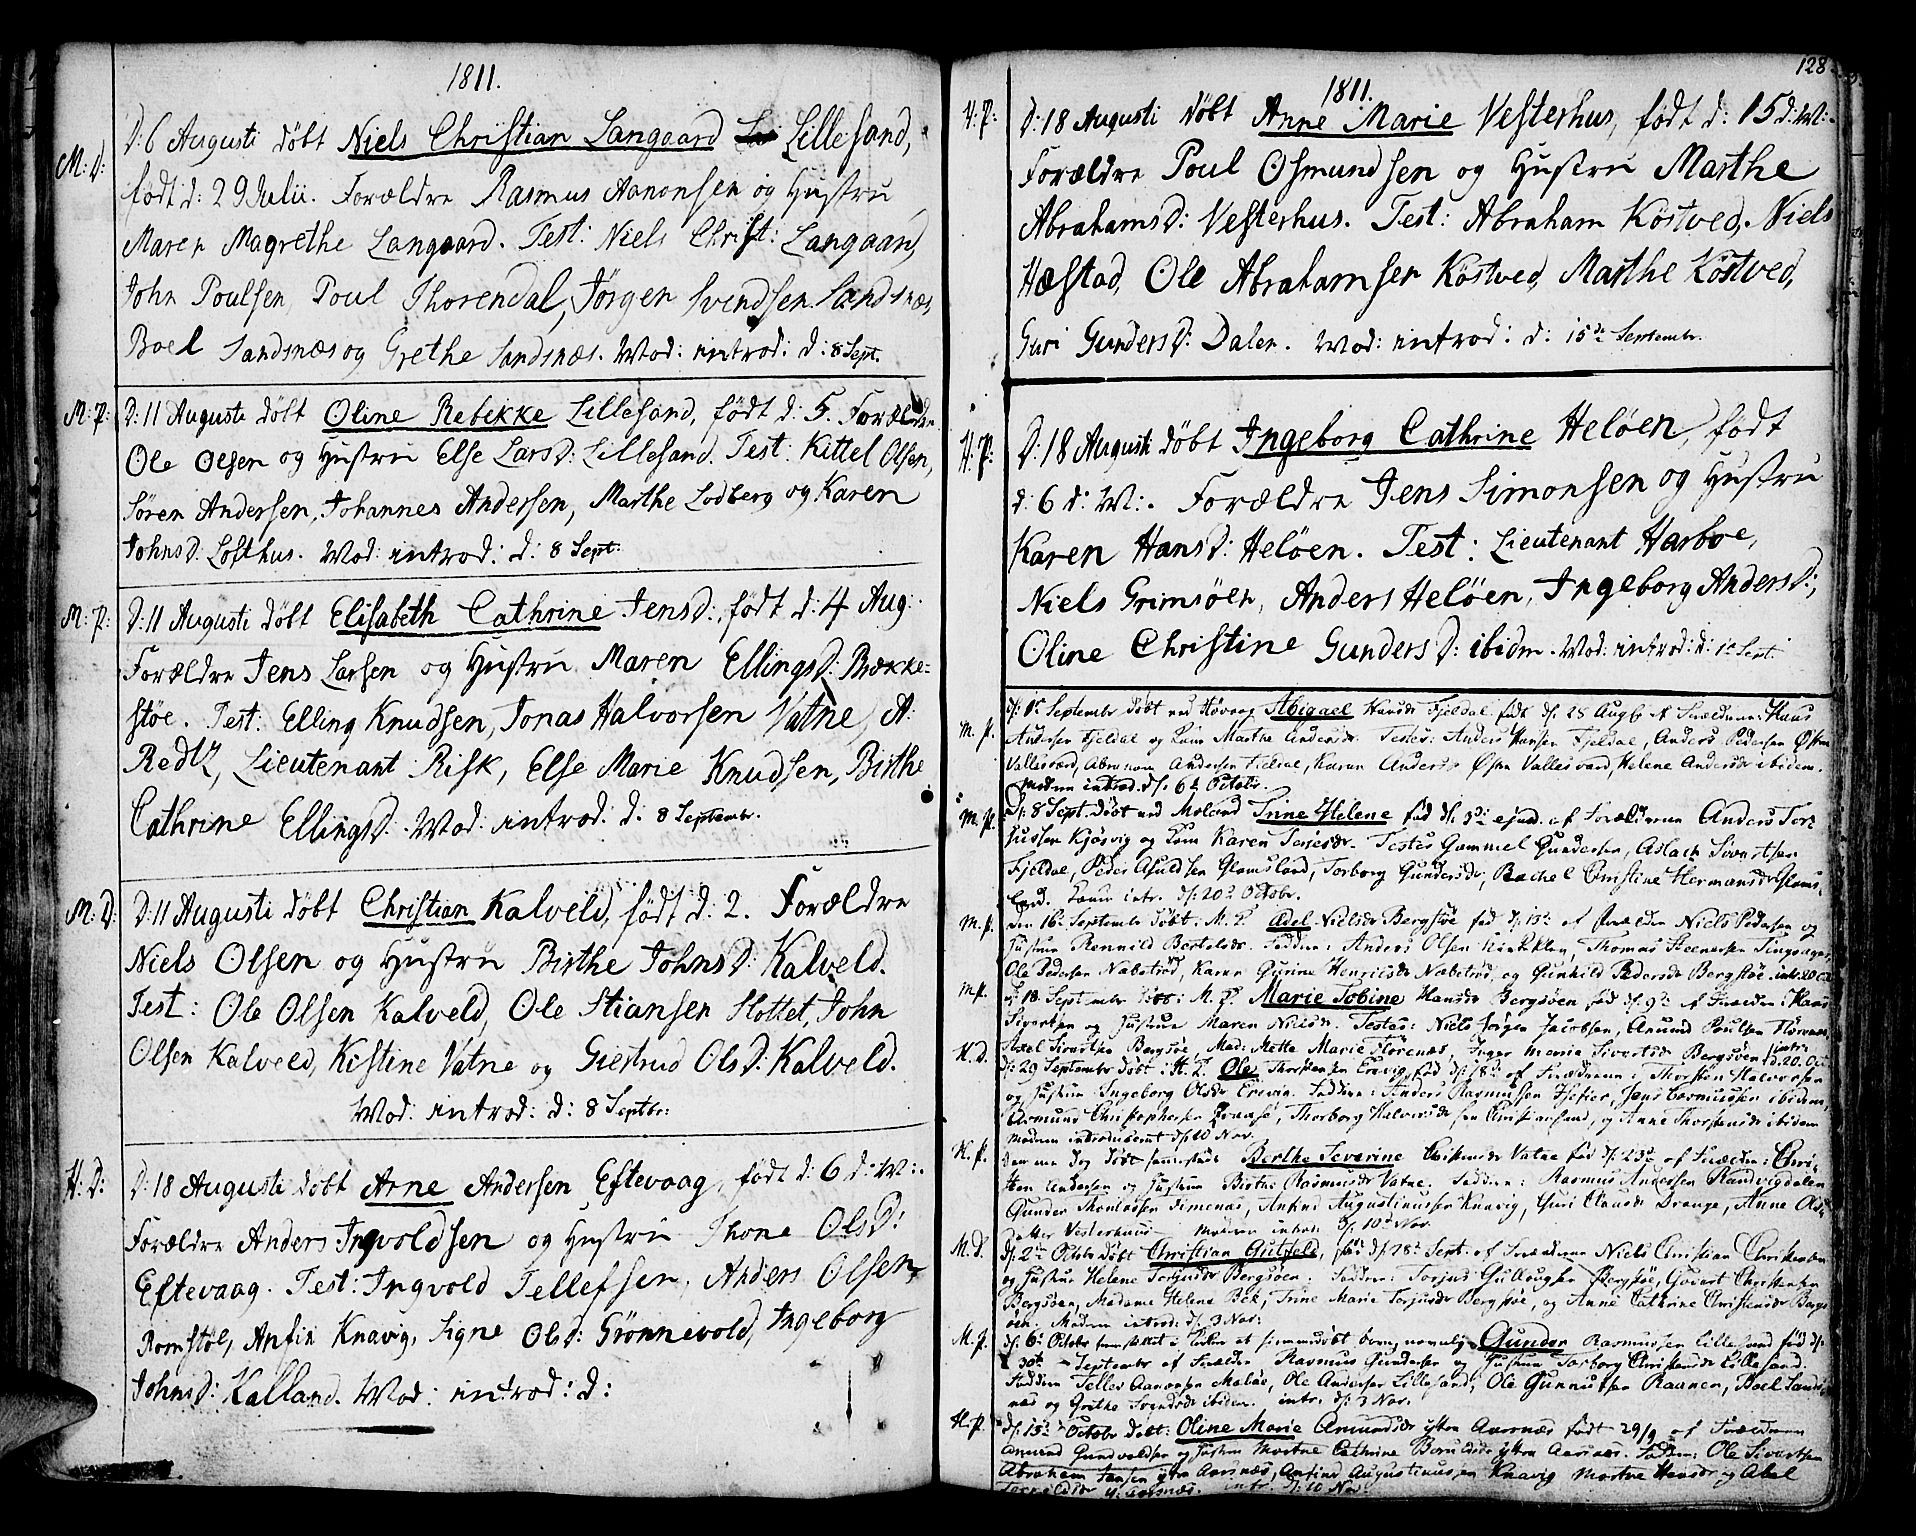 1811.
M: D: D: 6 Augusti døbt Niels Christian Langaard Lillesand,
født d: 29 Julii. Forældre Rasmus Aanonsen og Hustru
Maren Magrethe Langaard. Test: Niels Christ: Langaard,
John Poulsen, Poul Thorendal, Jørgen Svendsen Sandsnæs,
Boel Sandsnæs og Grethe Sandsnæs. Mod: introd: d: 8 Sept.
M: P: D: 11 Augusti døbt Oline Rebekke Lillesand, født d: 5. Forældre
Ole Olsen og Hustru Else Larsd: Lillesand. Test: Kittel Olsen,
Søren Andersen, Johannes Andersen, Marthe Lodberg og Karen
Johnsd: Lofthus. Mod: introd: d: 8 Sept:
M: P: D: 11 Augusti døbt Elisabeth Cathrine Jensd:, født d: 4 Aug:
Forældre Jens Larsen og Hustru Maren Ellingsd: Bække-
støe. Test: Elling Knudsen, Jonas Halvorsen Vatne, A:
Redtz, Lieutenant Risk, Else Marie Knudsen, Birthe
Cathrine Ellingsd: Mod: introd: d: 8 Septembr.
M: D: D: 11 Augusti døbt Christian Kalveld, født d: 2. Forældre
Niels Olsen og Hustru Birthe Johnsd: Kalveld.
Test: Ole Olsen Kalveld, Ole Stiansen Slottet, John
Olsen Kalveld, Kistine Vatne og Giertrud Olsd: Kalveld.
Mod: introd: d: 8 Septbr:
H: D: D: 18 Augusti døbt Arne Andersen Eftevaag, født d: 6 d: M:.
Forældre Anders Ingvoldsen og Hustru Thone Olsd:
Eftevaag. Test: Ingvold Tellefsen, Anders Olsen
Romstøl, Anfin Knavig, Signe Olsd: Grønnevold, Ingeborg
Johnsd: Kalland. Mod: introd: d:
128
1811.
H: P: D: 18 Augusti døbt Anne Marie Vesterhus, født d: 15 d: M:.
Forældre Poul Osmundsen og Hustru Marthe
Abrahamsd: Vesterhus. Test: Abraham Kostved, Niels
Hæstad, Ole Abrahamsen Kostved, Marthe Kostved,
Guri Gundersd: Dalen. Mod: introd: d: 15de Septembr.
H: P: D: 18 Augusti døbt Ingeborg Cathrine Heløen, født
d: 6 d: M:. Forældre Jens Simonsen og Hustru
Karen Hansd: Heløen. Test: Lieutenant Harboe,
Niels Grimsøen, Anders Heløen, Ingeborg Andersd:,
Oline Christine Gundersd: ibidm. Mod: introd: d: 1e Sept:
M. P. Septembr døbt ved Høvaag Abigael Hansdr Fjeldal født d: 28 Aug
Andersen Fjeldal og Marthe Andersdr. Testes: Anders Hansen Fjeldal, Anders Pedersen Østre
Vallesværd, Andersen Fjeldal, Karen Andersdr Østre Vallesværd, Helene Andersdr ibidem.
Modren introd. d: 6te Octobr.
M. P. d: 8 Sept. døbt ved Moland Trine Helene fød d: ejusd. af Forældrene Anders Ter-
Kjøsvig og Karen Terjesdr. Testes Gammel Gundersen, Aslach Sivertsen
Fjeldal, Peder Glamsland, Torborg Gundersdr, Rachel Christine Hermansdr Glams-
land. intr. d: 20de Octobr.
M. P. den 16: Septembr døbt: M. P. Adel Nielsdr Bergsøe fød d: af Forældre Niels Pedersen og
Hustru Ronnild Bertelsdr. Faddere: Anders Olsen Thomas Steenersen
Ole Pedersen Næbstrød, Karen Gurine Henrichsdr Næbstrød, og Gunhild Pedersdr Bergsøe
M. P. d: 18. Septembr døbt: M. P. Marie Tobine Hansdr Bergsøen fød d: 9de af Forældre: Hans
Sivertsen og Hustrue Maren Nielsdr. Testes: Niels Jørgen Jacobsen, Amund Poulsen Flørenæs
Axel Sivertsen Bergsøe, Mad: Mette Marie Flørenæs, Inger Maria Sivertsdr Bergsøen intr. d. 20. Oct
H. D. d: 29 Septembr døbt: H. P. Ole Thorstensen fød d: 18de af Forældrene: Thorsten Halvorsen
og Hustrue Ingeborg Olsdr. Faddere: Anders Rasmussen ibidem,
Asmund Christophersen Thorborg Halvorsdr Christiansand, og Anne Thorstensdr ibidem
Modren introduceret d: 10 Nov.
H. P. Berthe Severine Christensdr Vatne fød d: 23de af Forældre: Chri-
sten Andersen og Hustrue Birthe Rasmusdr Vatne. Faddere: Rasmus Andersen Randvigdalen
Gunder Thomassen Simenæs, Anfind Augustinussen Knavig, Guri Clausdr Drange, Anne Ols-
datter Vesterhuus. Modren introd: d: 10de Nov.
M. D. d: 2den Octobr døbt Christian Gulfeld, født d: 28de Sept. af Forældrene Niels Christian Christensen
og Hustrue Helene Terjusdr Bergsøen. Faddere: Torjus Gulloughsen Bergsøe, Govert Christensen
Bergsøen, Madame Helena Bek, Trine Marie Torjusdr Bergsøe, og Anne Cathrine Christensdr Bergs-
øen. Modren introd: d: 3 Nov:
M. P. d: 6te Octobr Gunder Rasmussen Lillesand fød d:
30te Septembr af Forældre Rasmus Gundersen og Hustrue Torborg Christensdr Lillesand.
Faddere Tellef Aanonsen Maløe, Ole Andersen Lillesand, Ole Gunnulfsen Raanen, Boel Sands-
næs og Grethe Svendsdr ibidem. intr. d: 3 Nov.
H. P. d: 13de Octobr døbt: Oline Marie Amundsdr Aarsnæs født 29/9 af Forældrene
Amund Gundvaldsen og Hustrue Cathrine Aarsnæs. Faddere: Ole Sivertsen
Abraham Jensen Aarsnæs, Anfind Augustinussen Knavig Hansdr og Abel
intr. d: 10 Nov.